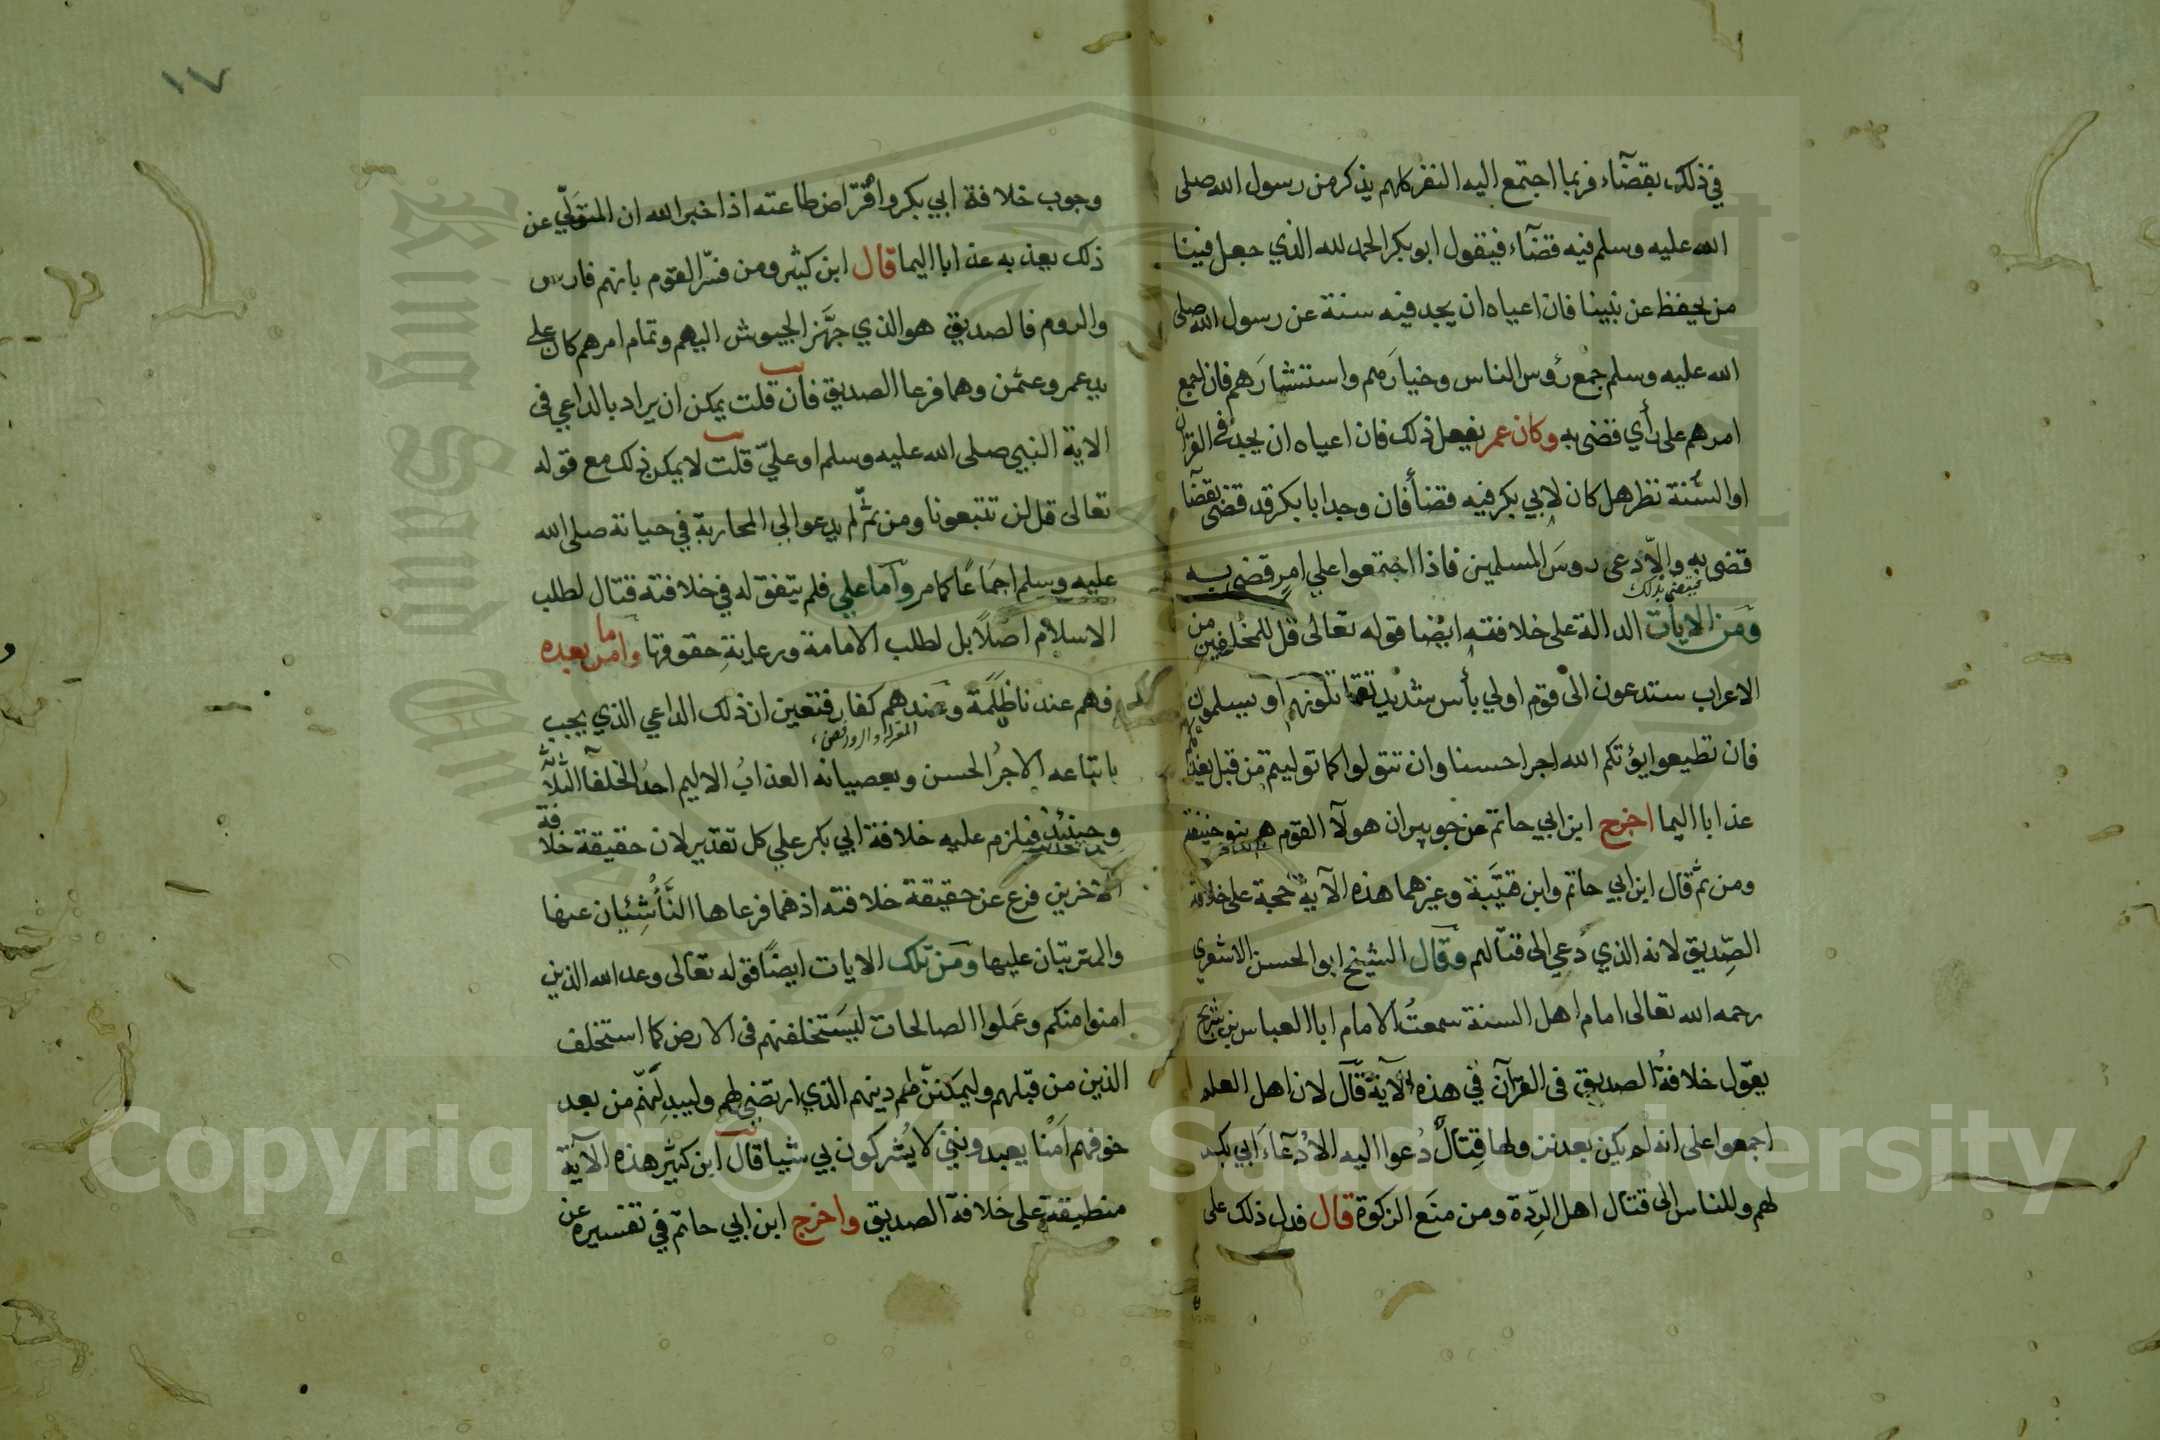 في ذلك بقضآء فربما اجتمع اليه النفر كلهم يذكر من رسول الله صلى
الله عليه وسلم فيه قضآء فيقول ابو بكر الحمد لله الذي جعل فينا
من يحفظ عن نبينا فان اعياه ان يجد فيه سنة عن رسول الله صلى
الله عليه وسلم جمع رؤس الناس وخيارهم واستشارهم فان اجمع
امرهم على رأي قضى به وكان عمر يفعل ذلك فان اعياه ان يجد في القرآن
او السنة نظر هل كان لابي بكر فيه قضأ فان وجد ابا بكر قد قضى بقضآ
قضى به والا دعى روس المسلمين فاذا اجتمعوا علي امر قضى به
ومن الايات الدالة على خلافته ايضا قوله تعالى قل للمخلفين من
الاعراب ستدعون الى قوم اولي بأس شديد تقاتلونهم او يسلمون
فان تطيعوا يؤتكم الله اجرا حسنا وان تتولوا كما توليتم من قبل يعذبكم
عذابا اليما اخرج ابن ابي حاتم عن جويبر ان هولآ القوم هم بنو حنيفة
ومن ثم قال ابن ابي حاتم وابن قتيبة وغيرهما هذه الآية حجة على خلافة
الصديق لانه الذي دعى الى قتالهم وقال الشيخ ابو الحسن الاشعري
رحمه الله تعالى امام اهل السنة سمعت الامام ابا العباس بن شريح
يقول خلافة الصديق في القرآن في هذه الآية قال لان اهل العلم
اجمعوا على انه لم يكن بعد نزولها قتال دعوا اليه الا دعآء ابي بكر
لهم وللناس الى قتال اهل الردة ومن منع الزكوة قال فدل ذلك على
١٧
وجوب خلافة ابي بكر وافتراض طاعته اذ اخبر الله ان المتولي عن
ذلك يعذبه عذابا اليما قال ابن كثير ومن فسر القوم بانهم فارس
والروم فالصديق هو الذي جهز الجيوش اليهم وتمام امرهم كان على
يد عمر وعثمن وهما فرعا الصديق فان قلت يمكن ان يراد بالداعي في
الاية النبي صلى الله عليه وسلم او علي قلت لا يمكن ذلك مع قوله
تعالى قل لن تتبعونا ومن ثم لم يدعوا الى المحاربة في حياته صلى الله
عليه وسلم اجماعا كما مر واما علي فلم يتفق له في خلافته قتال لطلب
الاسلام اصلا بل لطلب الامامة ورعاية حقوقها واما من بعده
فهم عندنا ظلمة وعندهم كفار فتعين ان ذلك الداعي الذي يجب
باتباعه الاجر الحسن وبعصيانه العذاب الاليم احد الخلفآ الثلاثة
وحينئذ فيلزم عليه خلافة ابي بكر علي كل تقدير لان حقيقة خلافة
الآخرين فرع عن حقيقة خلافته اذ هما فرعاها الناشئان عنها
والمترتبان عليها ومن تلك الايات ايضا قوله تعالى وعد الله الذين
امنوا منكم وعملوا الصالحات ليستخلفنهم في الارض كما استخلف
الذين من قبلهم وليمكنن لهم دينهم الذي ارتضى لهم وليبدلنهم من بعد
خوفهم امنا يعبدونني لا يشركون بي شيا قال ابن كثير هذه الآية
منطبقة على خلافة الصديق واخرج ابن ابي حاتم في تفسيره عن
Copyright © King Saud University